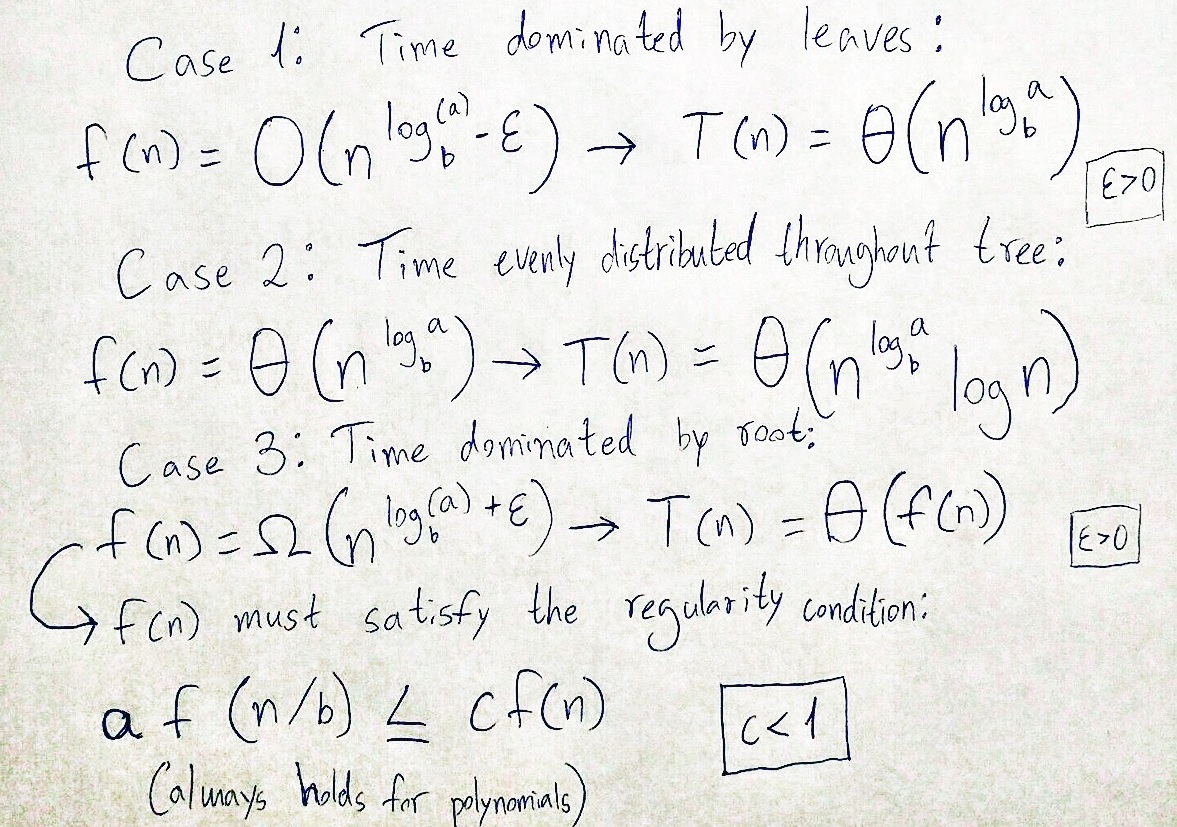 Case 1: Time dominated by leaves:
f(n) = O(n^(log_b(a) - ε)) → T(n) = θ(n^(log_b a))
ε>0
Case 2: Time evenly distributed throughout tree:
f(n) = θ(n^(log_b a)) → T(n) = θ(n^(log_b a) log n)
Case 3: Time dominated by root:
f(n) = Ω(n^(log_b(a) + ε)) → T(n) = θ(f(n))
ε>0
f(n) must satisfy the regularity condition:
a f (n/b) ≤ c f(n)
c<1
(always holds for polynomials)